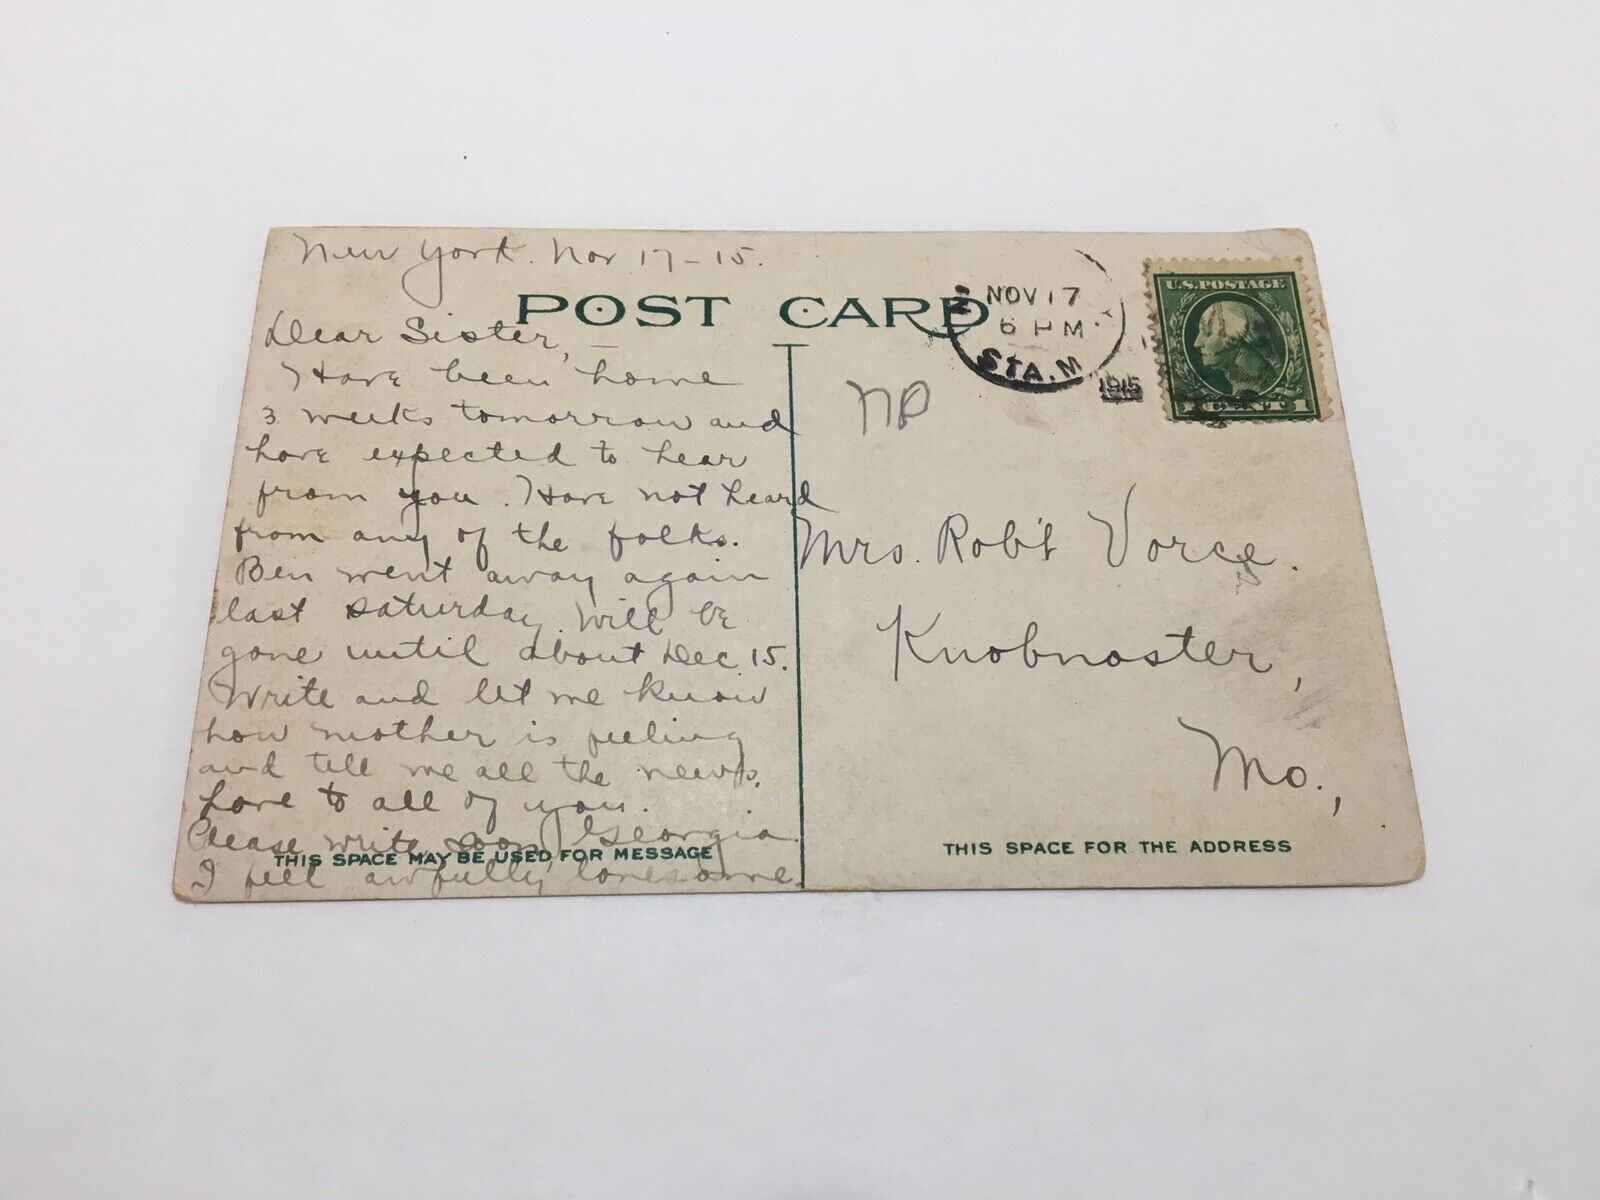 New York. Nov 17-15.
POST CARD
Dear Sister,
Have been home
3 weeks tomorrow and
have expected to hear
from you. Have not heard
from any of the folks.
Ben went away again
last Saturday. Will be
gone until about Dec 15.
Write and let me know
how mother is feeling
and tell me all the news.
Love to all of you.
Please write soon, Georgia
I feel awfully lonesome.
THIS SPACE MAY BE USED FOR MESSAGE
NOV 17
6 PM
STA. M
1915
U.S. POSTAGE
1 CENT 1
Mrs. Rob't Vorce.
Knobnoster,
Mo.,
THIS SPACE FOR THE ADDRESS